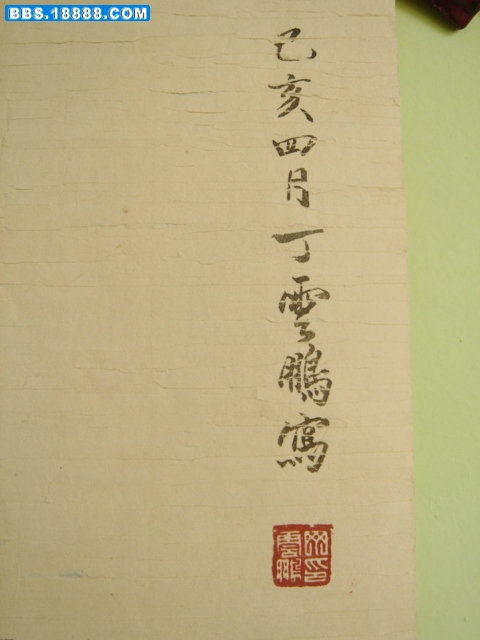 BBS.18888.COM
己亥四月丁雲鵬寫